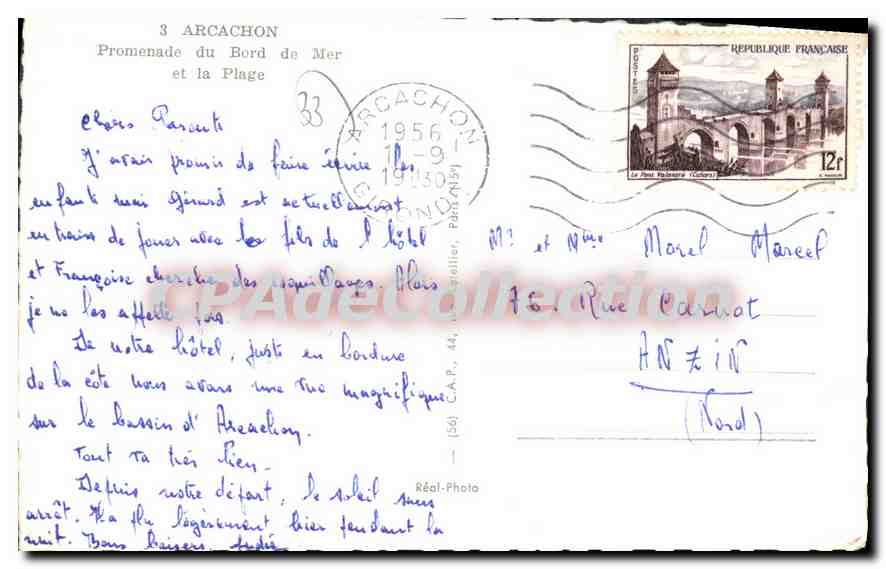 3 ARCACHON
Promenade du Bord de Mer
et la Plage
33
ARCACHON
1956
GIRONDE
REPUBLIQUE FRANÇAISE
POSTES
12f
Le Pont Valentré (Cahors)
Chers Parents
J'avais promis de faire écrire les
enfants mais Gérard est actuellement
en train de jouer avec le fils de l'hôtel
et Françoise cherche des coquillages. Alors
je ne les appelle pas.
De notre hôtel, juste en bordure
de la côte nous avons une vue magnifique
sur le bassin d'Arcachon.
Tout va très bien.
Depuis notre départ, le soleil sans
arrêt. Il a plu légèrement hier pendant la
nuit. Bons baisers. André
Mr et Mme Morel Marcel
76. Rue Carnot
ANZIN
(Nord)
(56) C.A.P., 44, Paris
Réal-Photo
CPAdeCollection